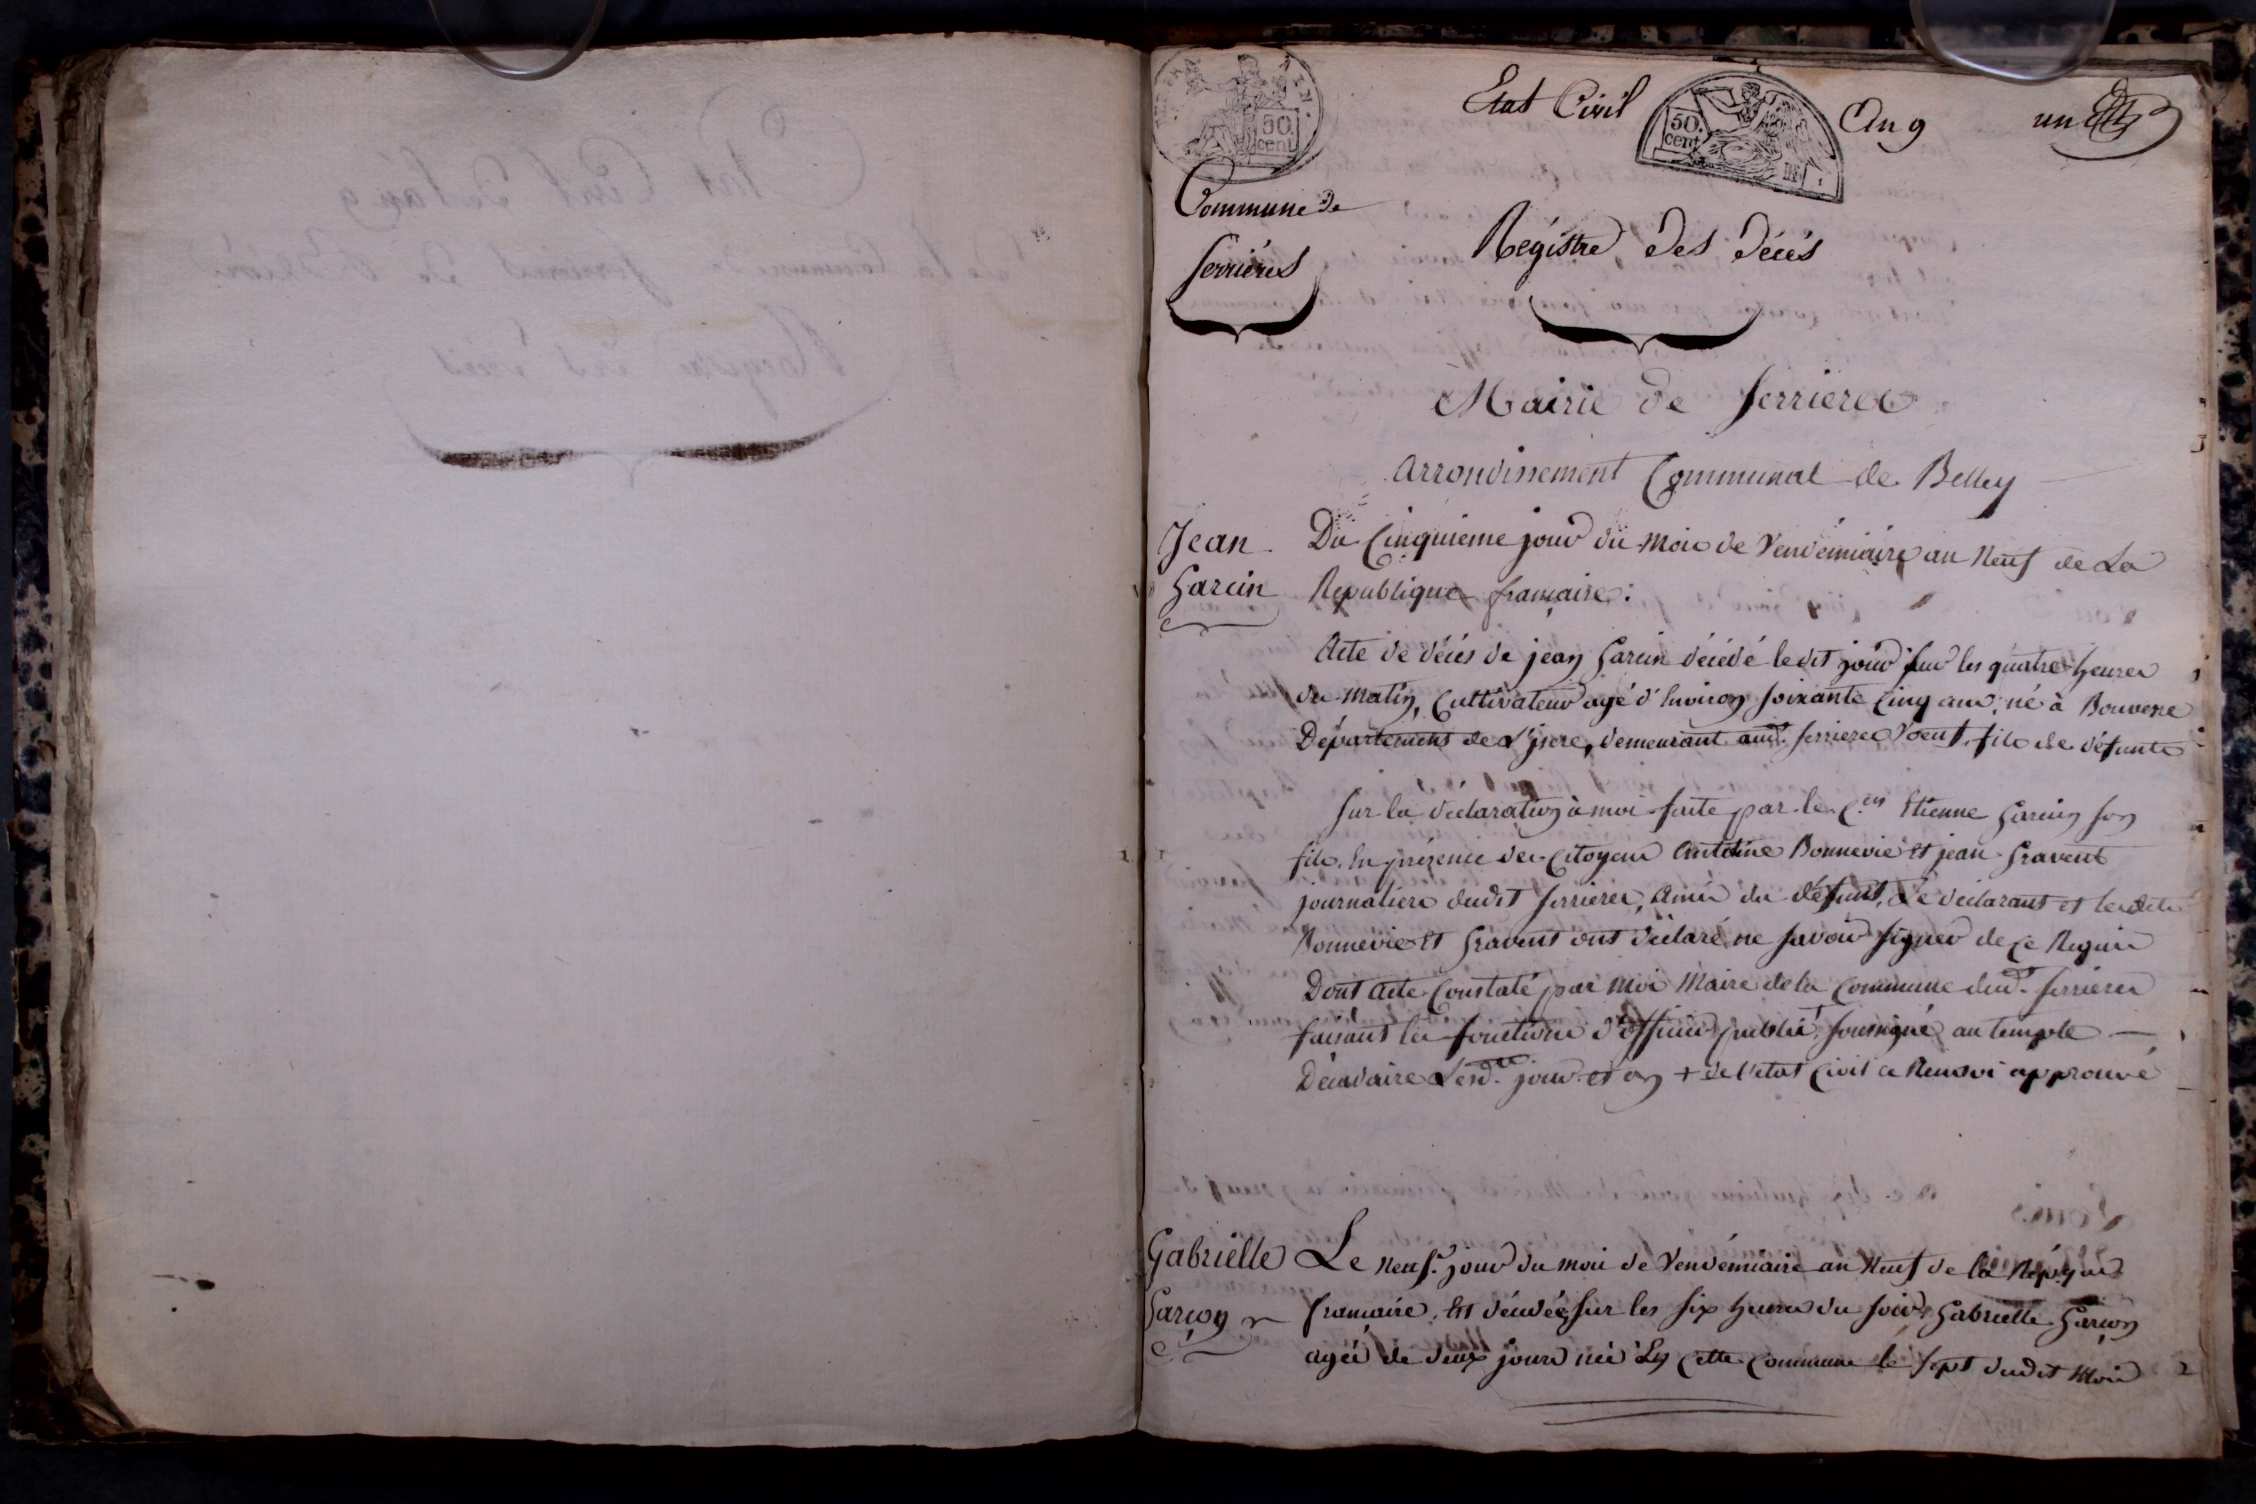 Etat Civil
50.
cent
50.
cent
An 9
un
Commune de
Serrières
Régistre des décés
Mairie de Serrieres
Arrondissement Communal de Belley
Jean
Garcin
Du Cinquieme jour du mois de Vendémiaire an Neuf de La
Republique française :
Acte de décés de jean Garcin décédé le dit jour sur les quatre heures
du matin, Cultivateur agé d'Environ soixante Cinq ans, né à Bouvesse
Département de L'Isere, demeurant aud. Serrieres veuf, fils de défunts
Sur la déclaration à moi faite par le C.en Etienne Garcin son
fils, En présence des Citoyens Antoine Bonnevie Et jean Gravent
journaliers dudit Serrieres, Amis du défunt, Le déclarant et lesdits
Bonnevie Et Gravent ont déclaré ne savoir signer de ce Requis
Dont Acte Constaté par Moi Maire de la Commune dud. Serrieres
faisant les fonctions d'officier public soussigné au temple
Décadaire Lesd. jour et an + de l'etat Civil ce Renvoi approuvé
Gabrielle
Garçon
Le neuf. jour du mois de Vendémiaire an Neuf de la Répque
française, Est décédée, sur les six heures du soir, Gabrielle Garçon
agée de deux jours née En Cette Commune le sept dudit Mois